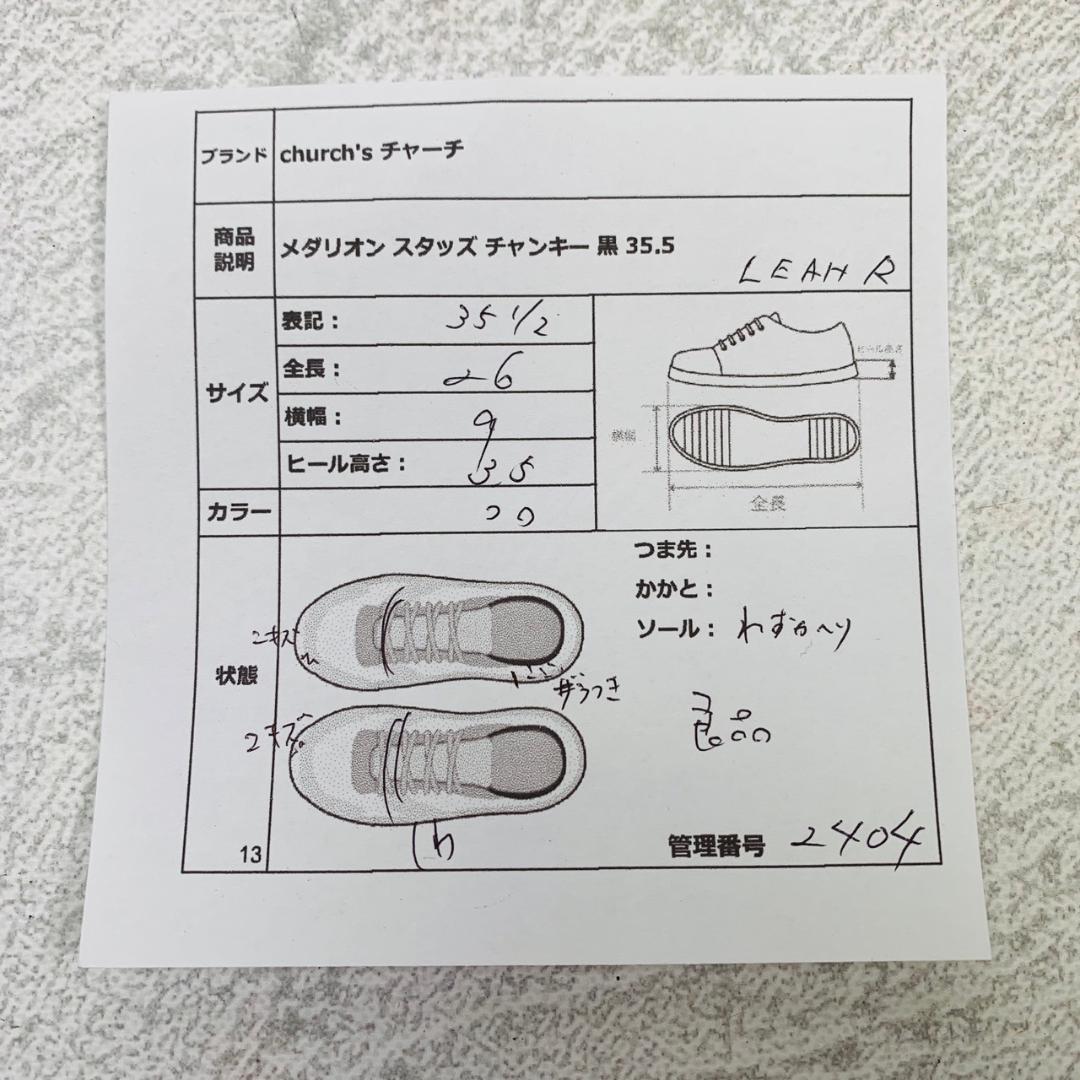 ブランド church's チャーチ
商品説明 メダリオン スタッズ チャンキー 黒 35.5
LEAH R
サイズ
表記： 35 1/2
全長： 26
横幅： 9
ヒール高さ： 3.5
ヒール高さ
横幅
全長
カラー クロ
状態
つま先：
かかと：
ソール： わずかヘリ
小キズ
ザラつき
小キズ
良品
13
管理番号 2404